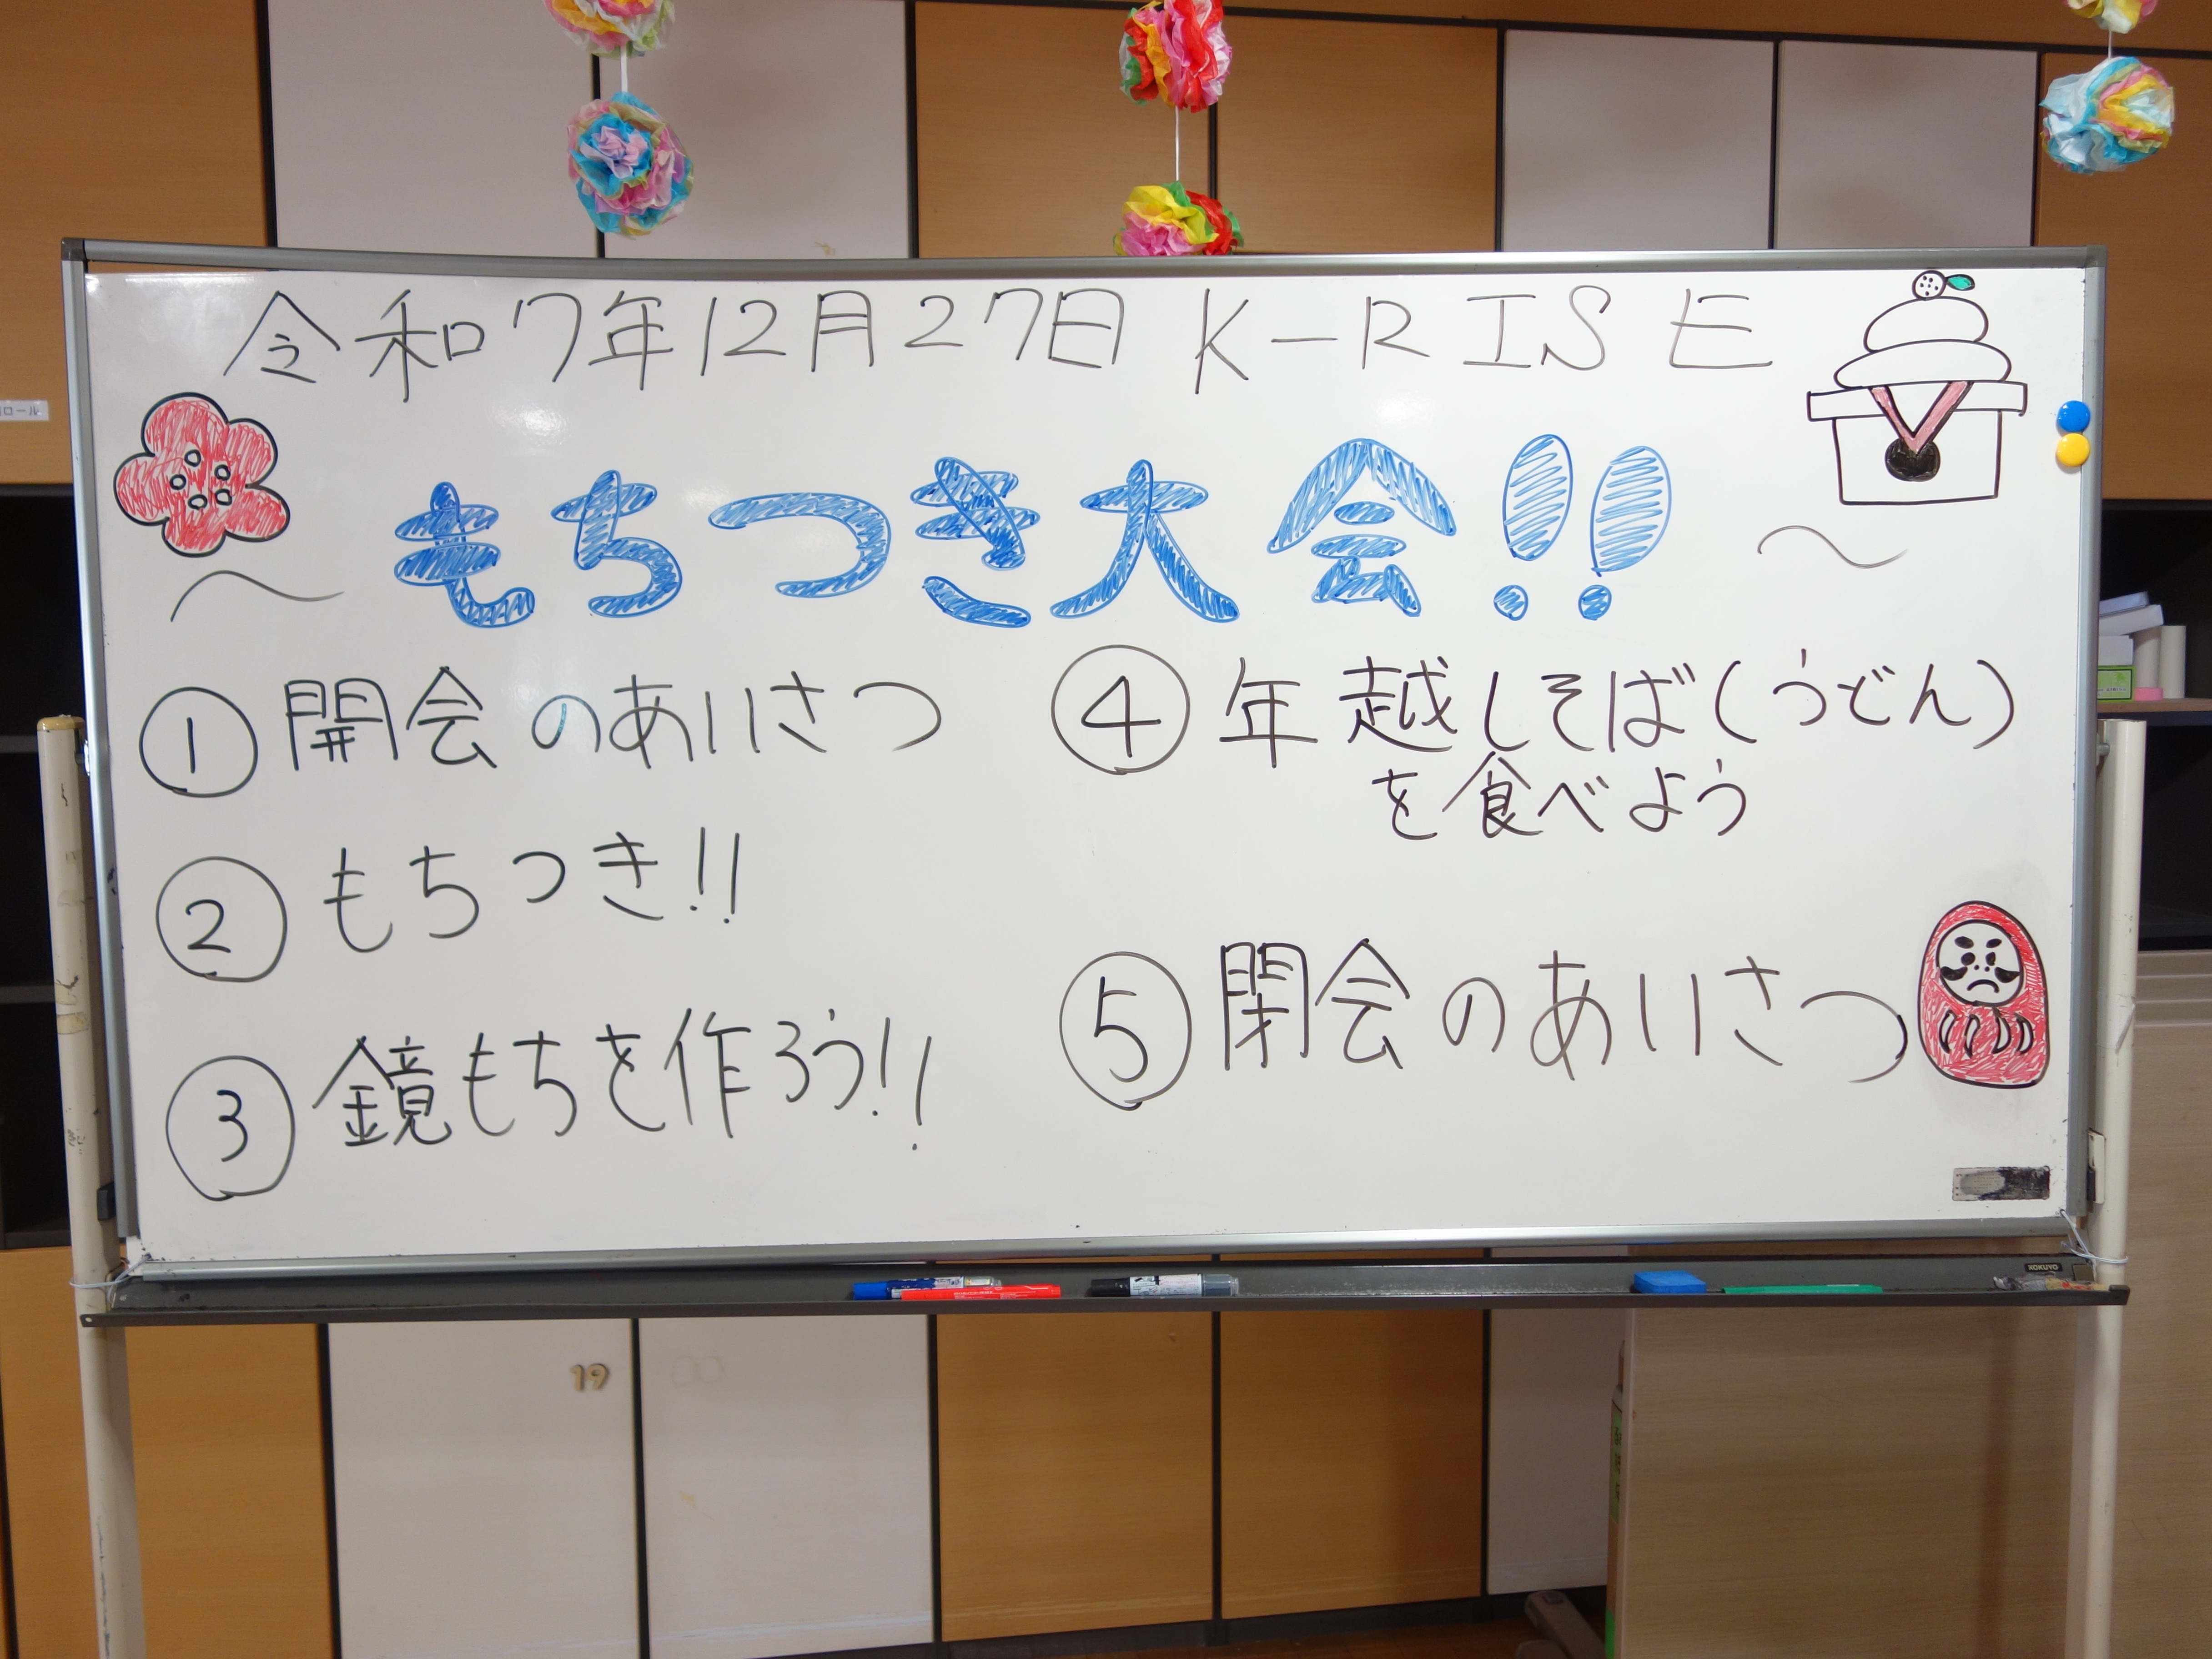 令和7年12月27日 K-RISE
～もちつき大会!!～
① 開会のあいさつ
② もちつき!!
③ 鏡もちを作ろう!!
④ 年越しそば(うどん)
を食べよう
⑤ 閉会のあいさつ
ロール
KOKUYO
19